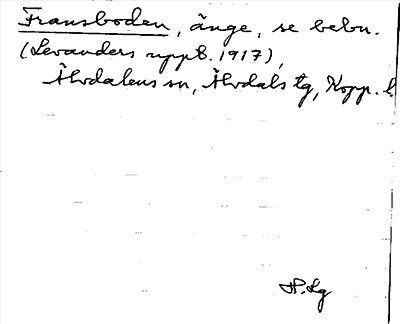 Fransboden, änge, se bebn.
(Levanders uppt. 1917),
Älvdalens sn, Älvdals tg, Kopp. l.
H. Lg